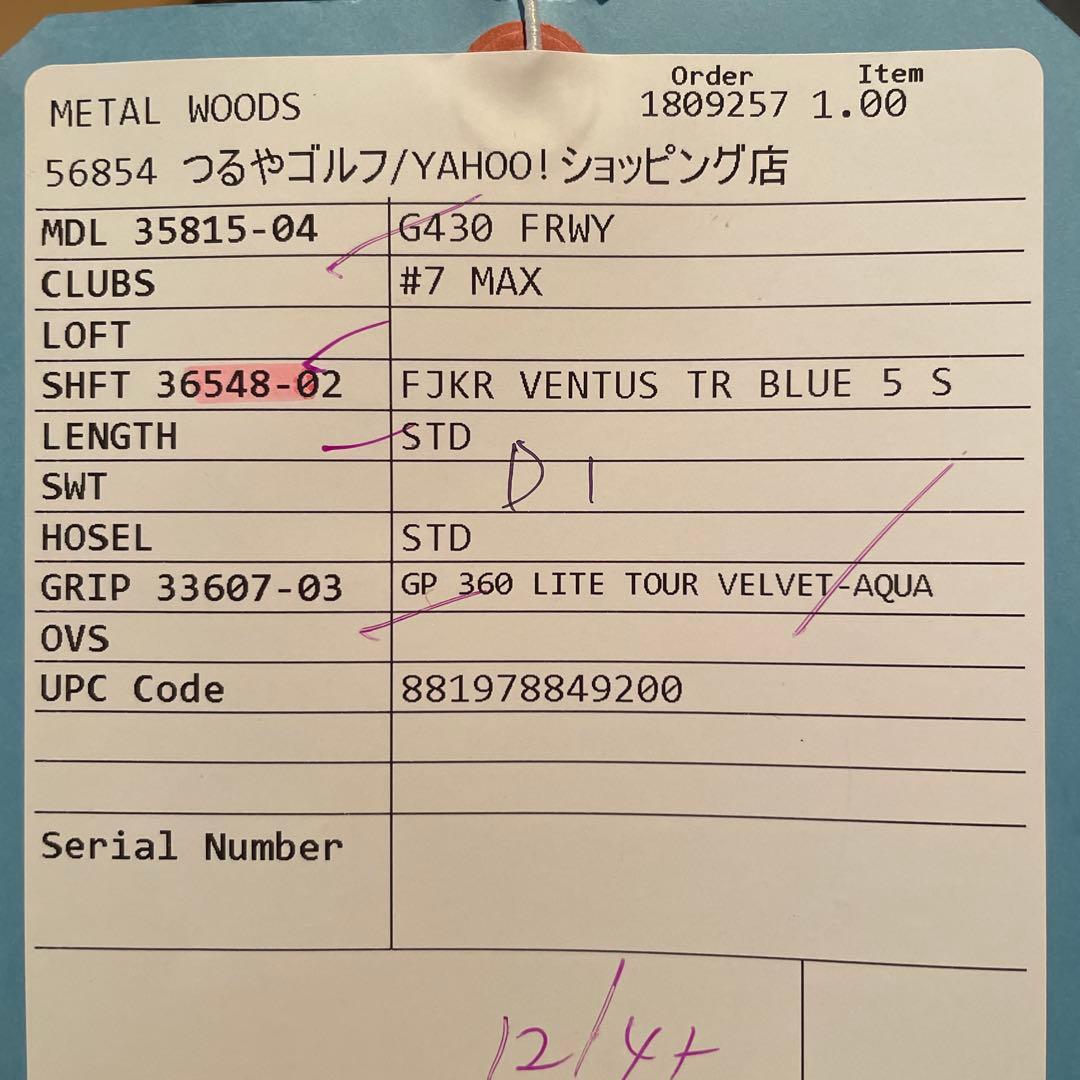 Order Item
METAL WOODS 1809257 1.00
56854 つるやゴルフ/YAHOO!ショッピング店
MDL 35815-04 G430 FRWY
CLUBS #7 MAX
LOFT
SHFT 36548-02 FJKR VENTUS TR BLUE 5 S
LENGTH STD
SWT D1
HOSEL STD
GRIP 33607-03 GP 360 LITE TOUR VELVET-AQUA
OVS
UPC Code 881978849200
Serial Number